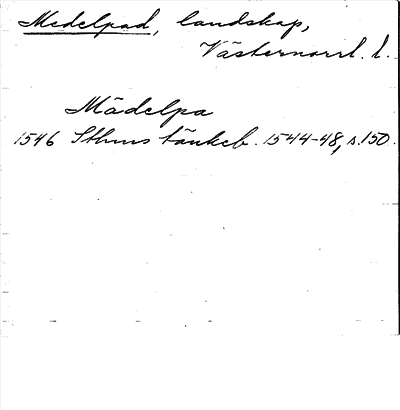 Medelpad, landskap,
Västernorrl. l.
Mädelpa
1546 Sthms tänkeb. 1544-48, s. 150.